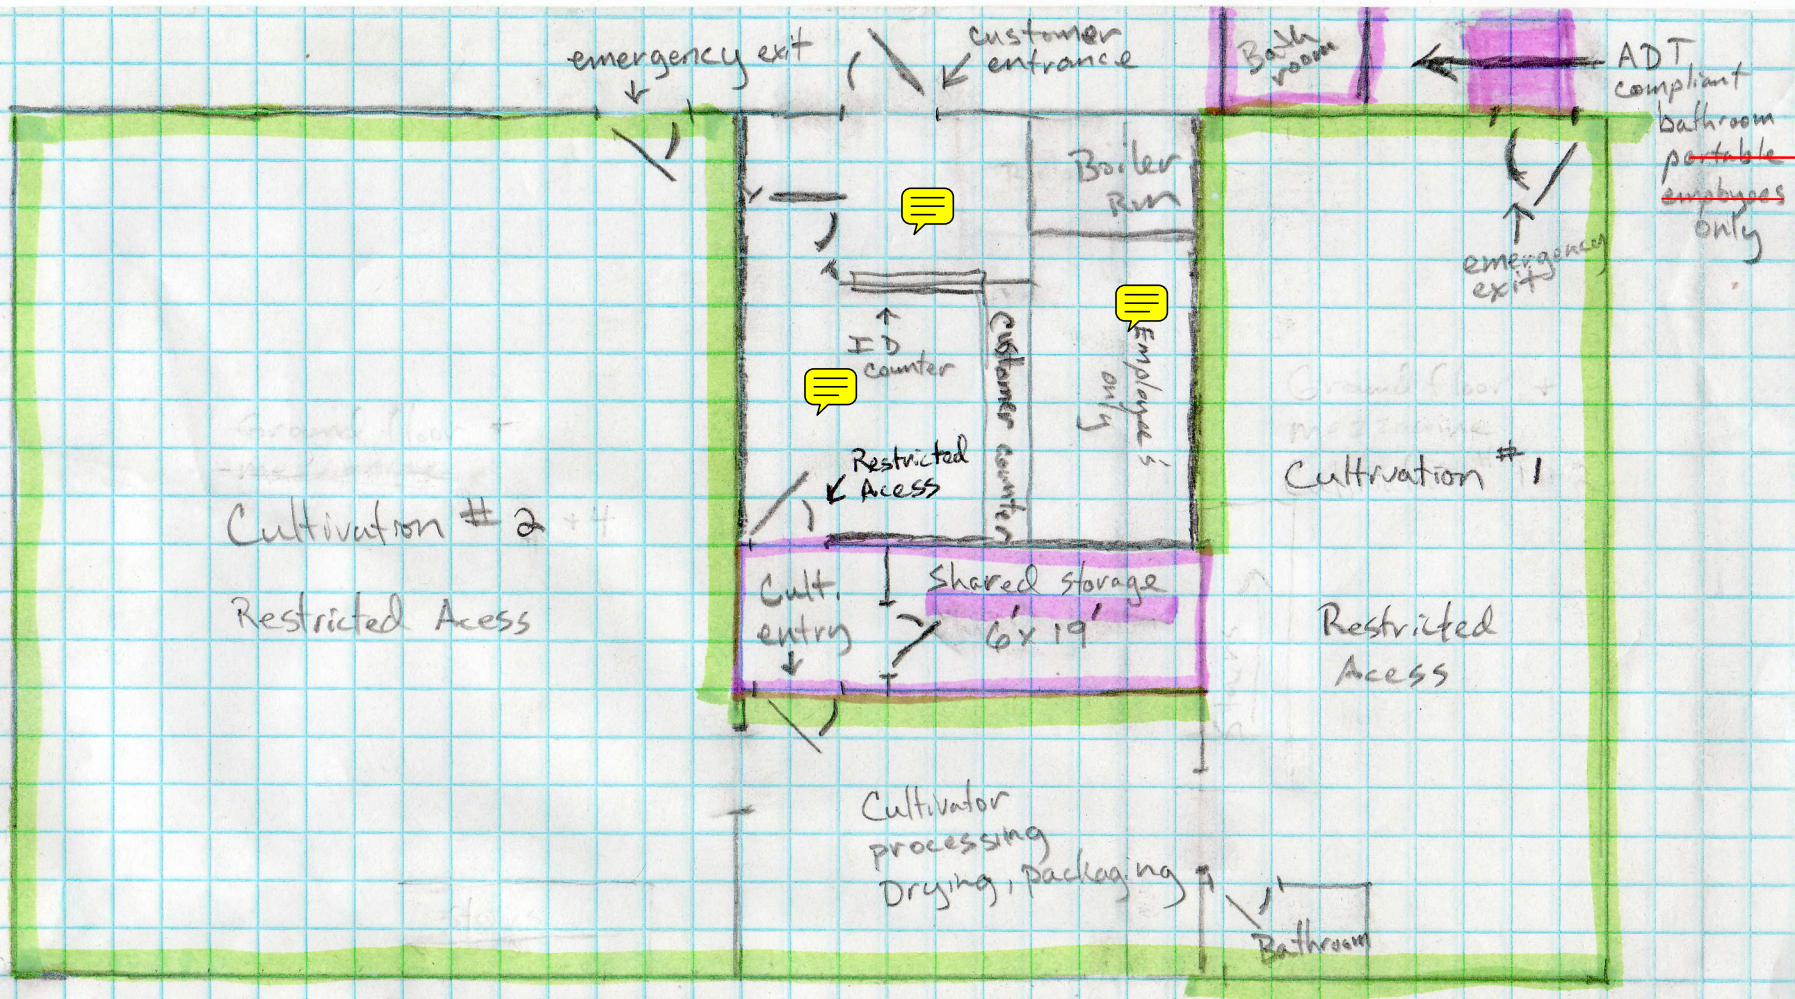 emergency exit
customer
entrance
Bath
room
ADT
compliant
bathroom
portable
employees
only
Boiler
Rm
emergency
exit
ID
counter
Customer counter
Employee's
only
Restricted
Acess
Ground floor +
Ground floor +
mezzanine
Cultivation #2 +4
Restricted Acess
Cultivation #1
Restricted
Acess
Cult.
entry
Shared storage
6' x 19'
Cultivator
processing
Drying, packaging
Bathroom